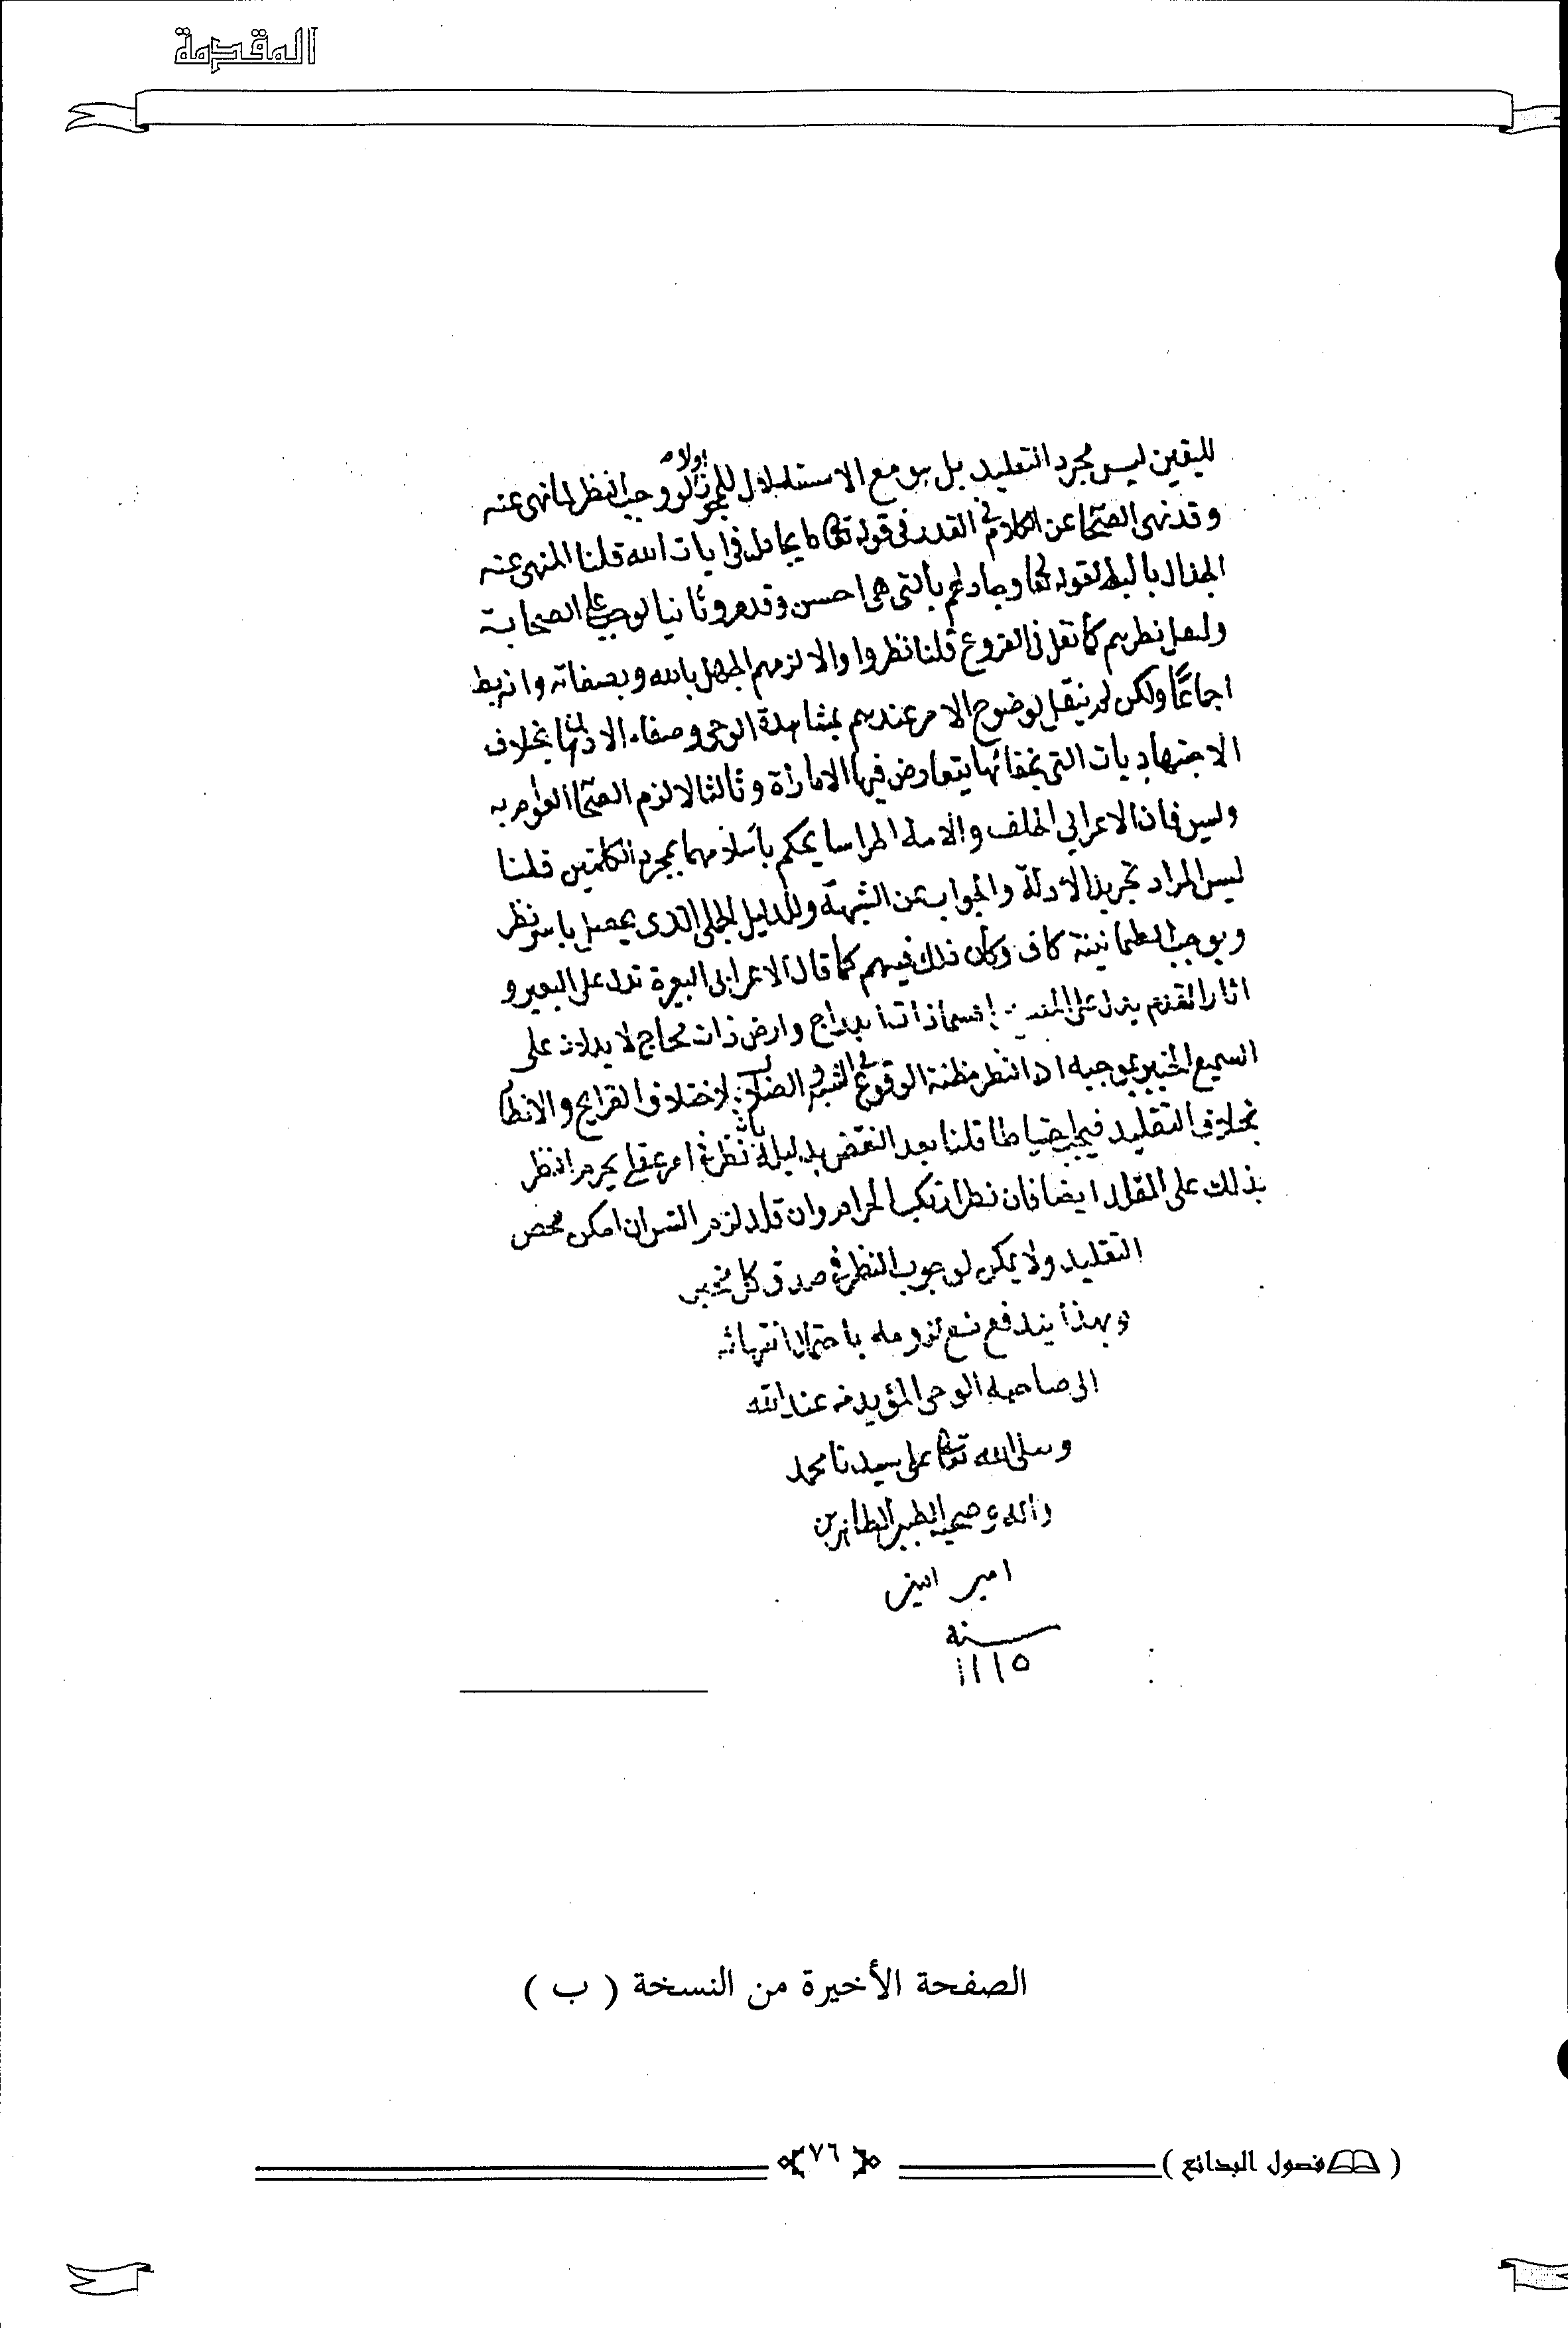 المقدمة
لليقين ليس مجرد التقليد بل هو مع الاستدلال للمجوز اولا لو وجب النظر لما نهى عنه
وقد نهى الصحابة عن الكلام في القدر في قوله تعالى ما يجادل في ايات الله قلنا المنهى عنه
الجدال بالباطل لقوله تعالى وجادلهم بالتى هى احسن وقد مر وثانيا لوجب على الصحابة
ولنقل نظرهم كما نقل فى الفروع قلنا نظروا والا لزمهم الجهل بالله وبصفاته وانه بط
اجماعًا ولكن لم ينقل لوضوح الامر عندهم بمشاهدة الوحى وصفاء الاذهان بخلاف
الاجتهاديات التى بخفائها يتعارض فيها الامارة وثالثا لالزم الصحابة العوام به
وليس فان الاعرابى الجلف والامة الخرساء يحكم باسلامهما بمجرد الكلمتين قلنا
ليس المراد تحرير الادلة والجواب عن الشبهة والدليل الجملى الذى يحصل بايسر نظر
ويوجب الطمانينة كاف وكان ذلك فيهم كما قال الاعرابى البعرة تدل على البعير و
اثار القدم يدل على المسير افسماء ذات ابراج وارض ذات فجاج لا يدلان على
السميع الخبير بموجبه اذ النظر مظنة الوقوع فى الشبه والضلال لاختلاف القرايح والانظار
بخلاف التقليد فيجب احتياطا قلنا بعد النقض بدليله بان نظر فى امر عقلى يحرم النظر
بذلك على المقلد ايضا فان نظر ارتكب الحرام وان قلد لزم التس ان امكن محض
التقليد ولا يمكن لوجوب النظر فى صدق كل مخبر
وبهذا يندفع منع لزومه باحتمال انتهائه
الى صاحب الوحى المؤيد من عند الله
وصلى الله تعالى على سيدنا محمد
واله وصحبه الطيبين الطاهرين
امين امين
سنة
١١١٥
الصفحة الأخيرة من النسخة ( ب )
( فصول البدائع )
٧٦